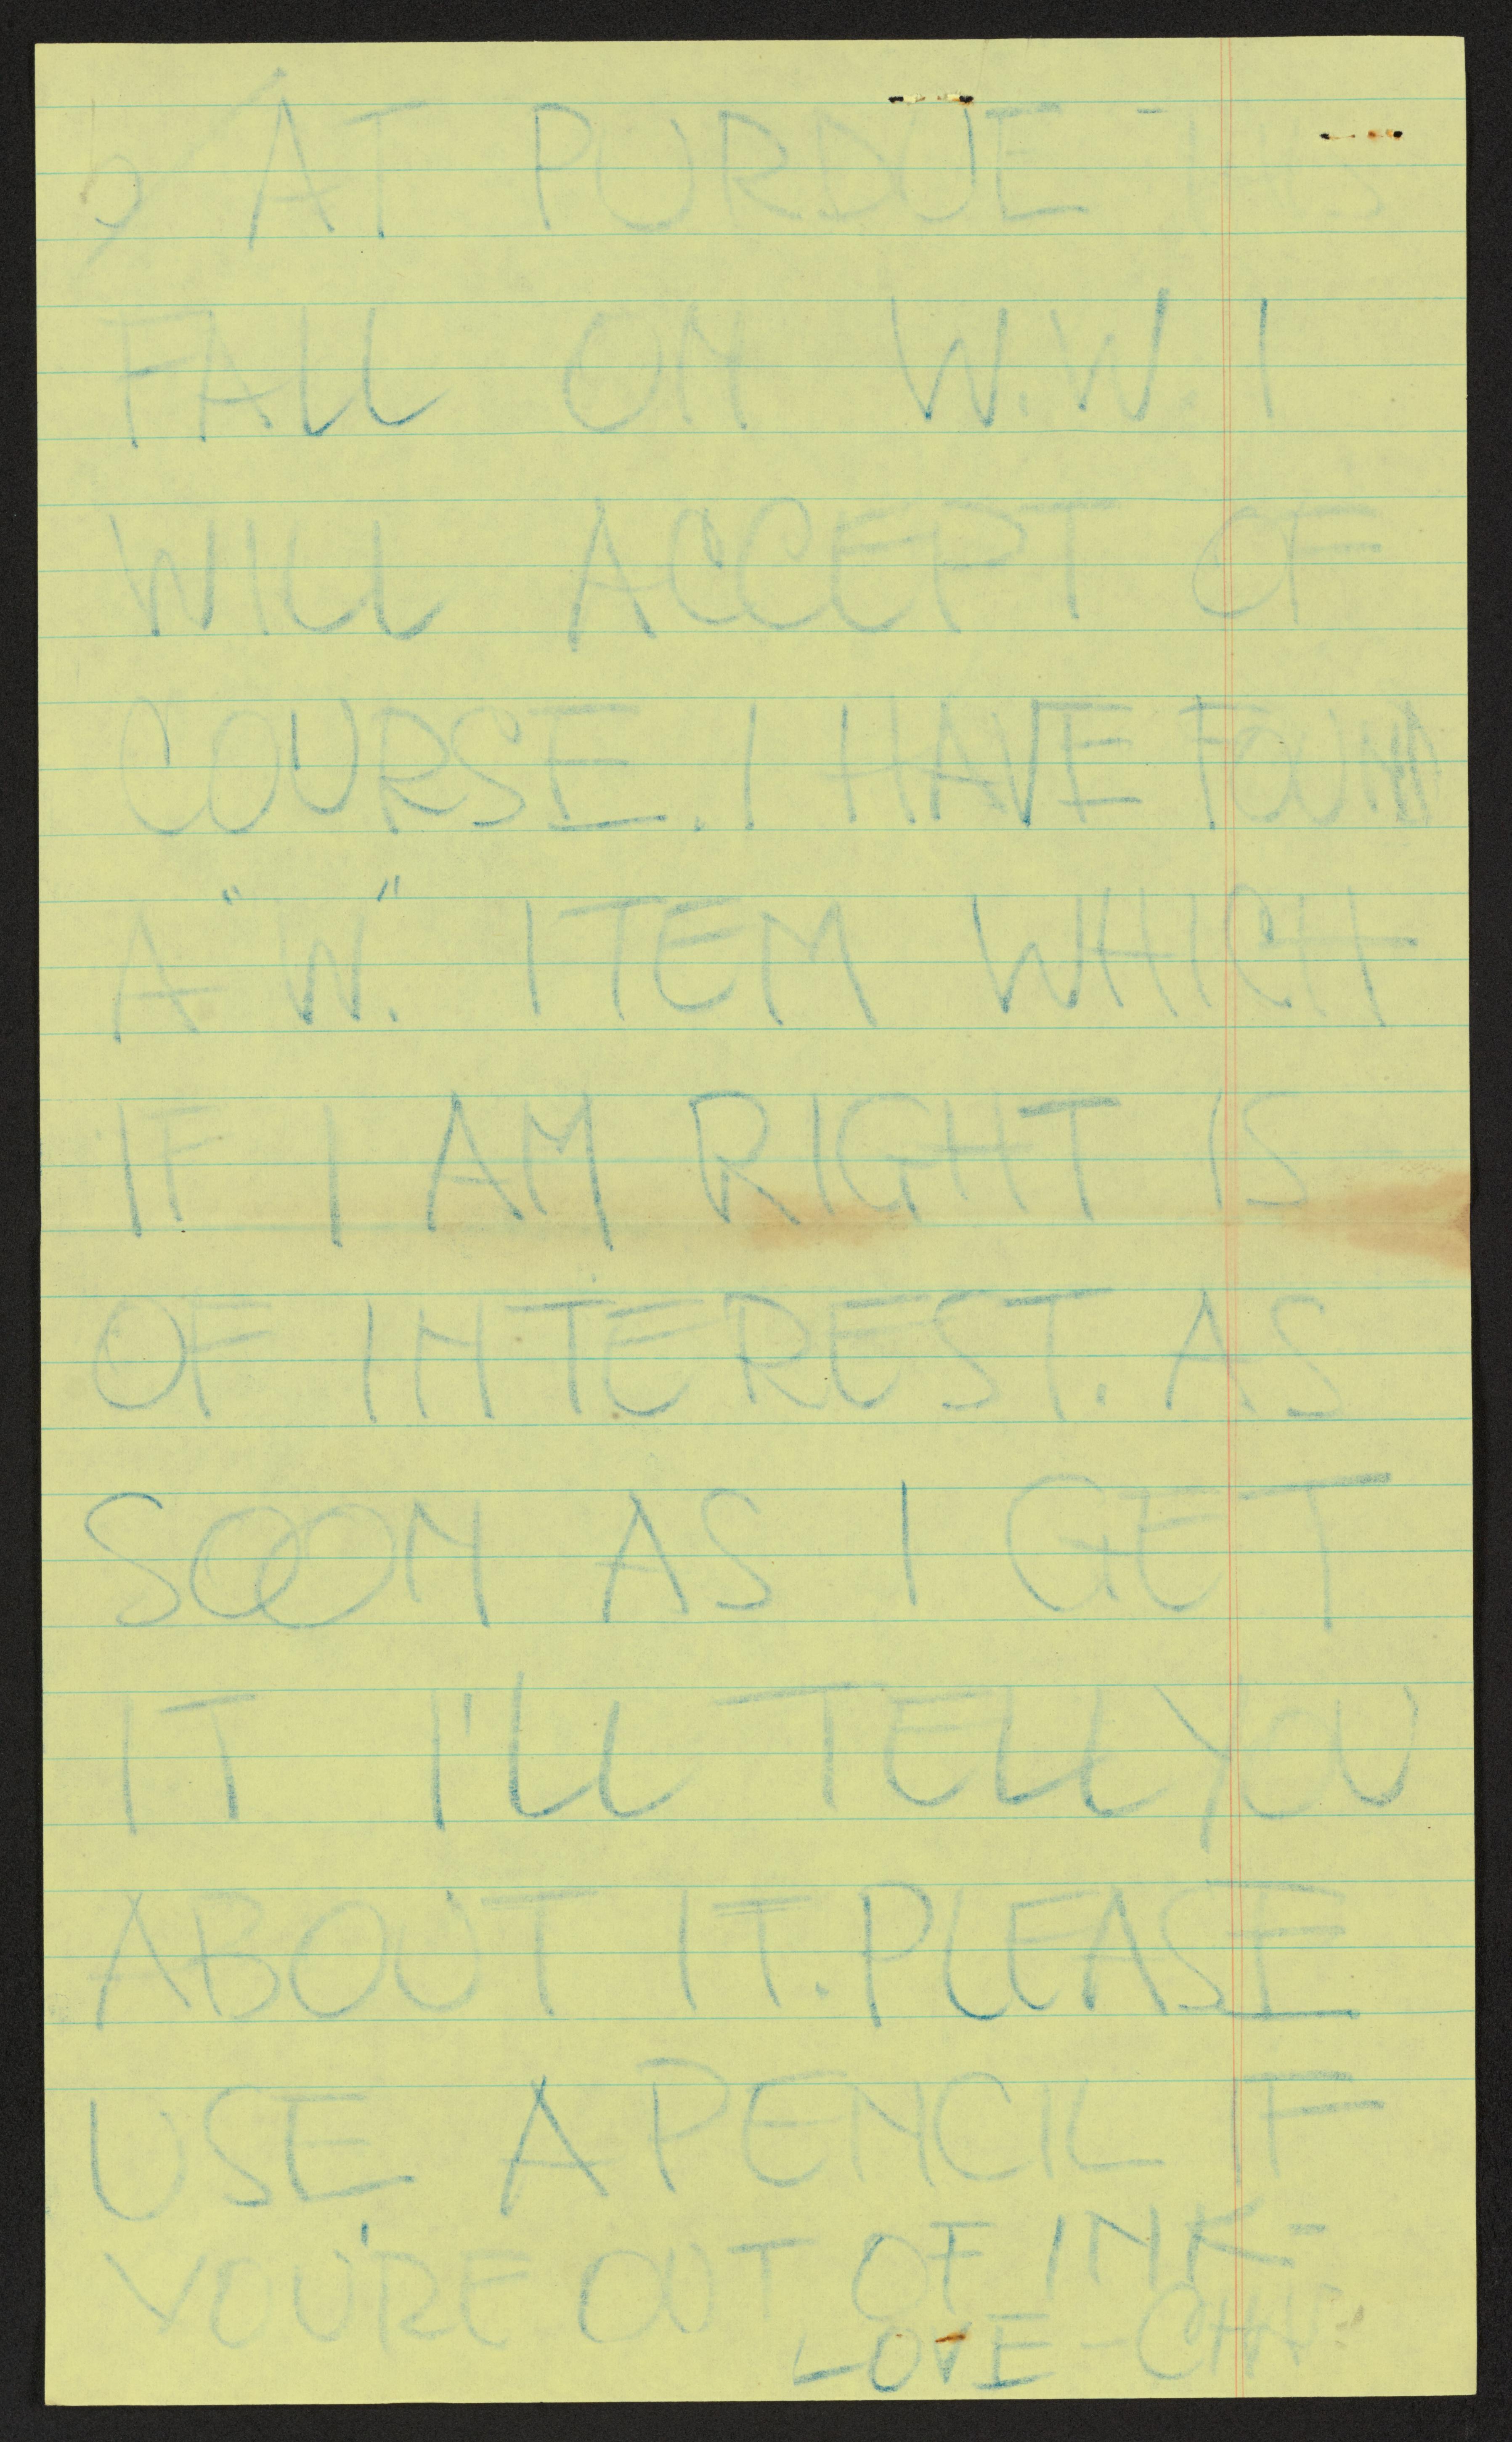 AT PURDUE THIS
FALL ON W.W. I
WILL ACCEPT OF
COURSE. I HAVE FOUND
A "W." ITEM WHICH
IF I AM RIGHT IS
OF INTEREST. AS
SOON AS I GET
IT I'LL TELL YOU
ABOUT IT. PLEASE
USE A PENCIL IF
YOU'RE OUT OF INK-
LOVE -